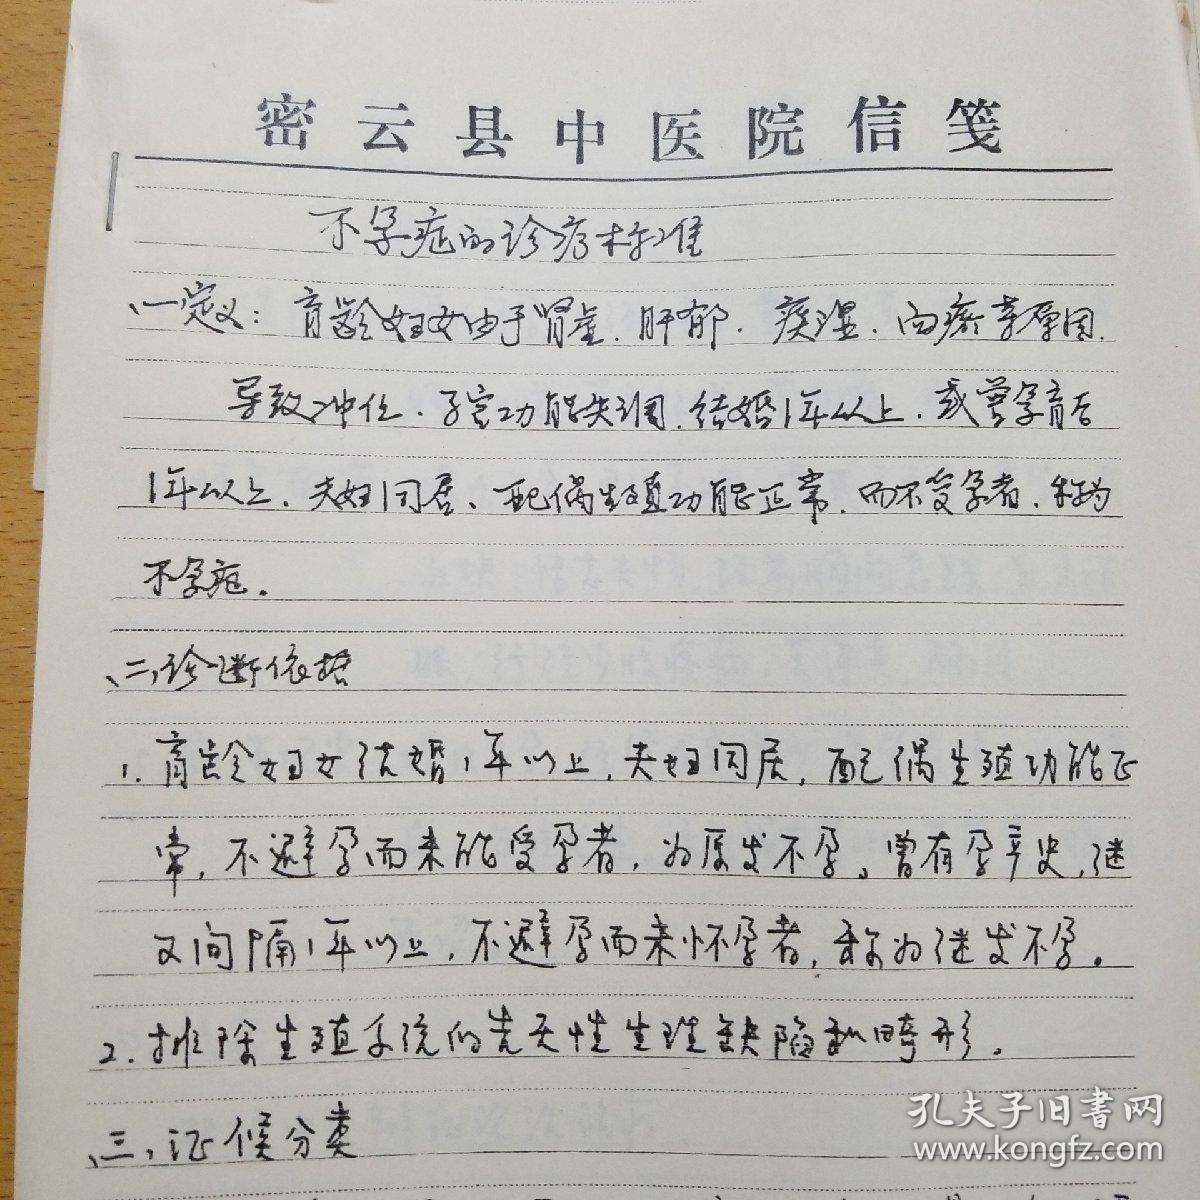 密云县中医院信笺
不孕症的诊疗标准
一、定义：育龄妇女由于肾虚、肝郁、痰湿、血瘀等原因、
导致冲任、子宫功能失调、结婚1年以上、或曾孕育后
1年以上、夫妇同居、配偶生殖功能正常、而不受孕者、称为
不孕症。
二、诊断依据
1. 育龄妇女结婚1年以上，夫妇同居，配偶生殖功能正
常，不避孕而未能受孕者，为原发不孕。曾有孕育史，继
又间隔1年以上，不避孕而未怀孕者，称为继发不孕。
2. 排除生殖系统的先天性生理缺陷和畸形。
三、证候分类
孔夫子旧书网
www.kongfz.com